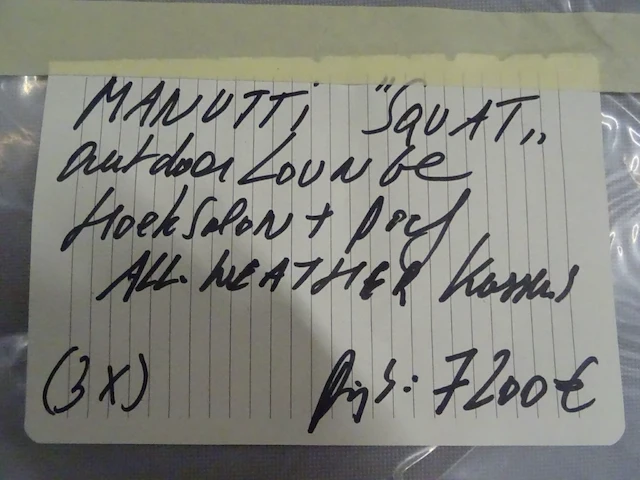 MANUTTi "SQUAT„
outdoor LOUNGE
Hoeksalon + poef
ALL-WEATHER Kussens
(3X) prijs: 7200€